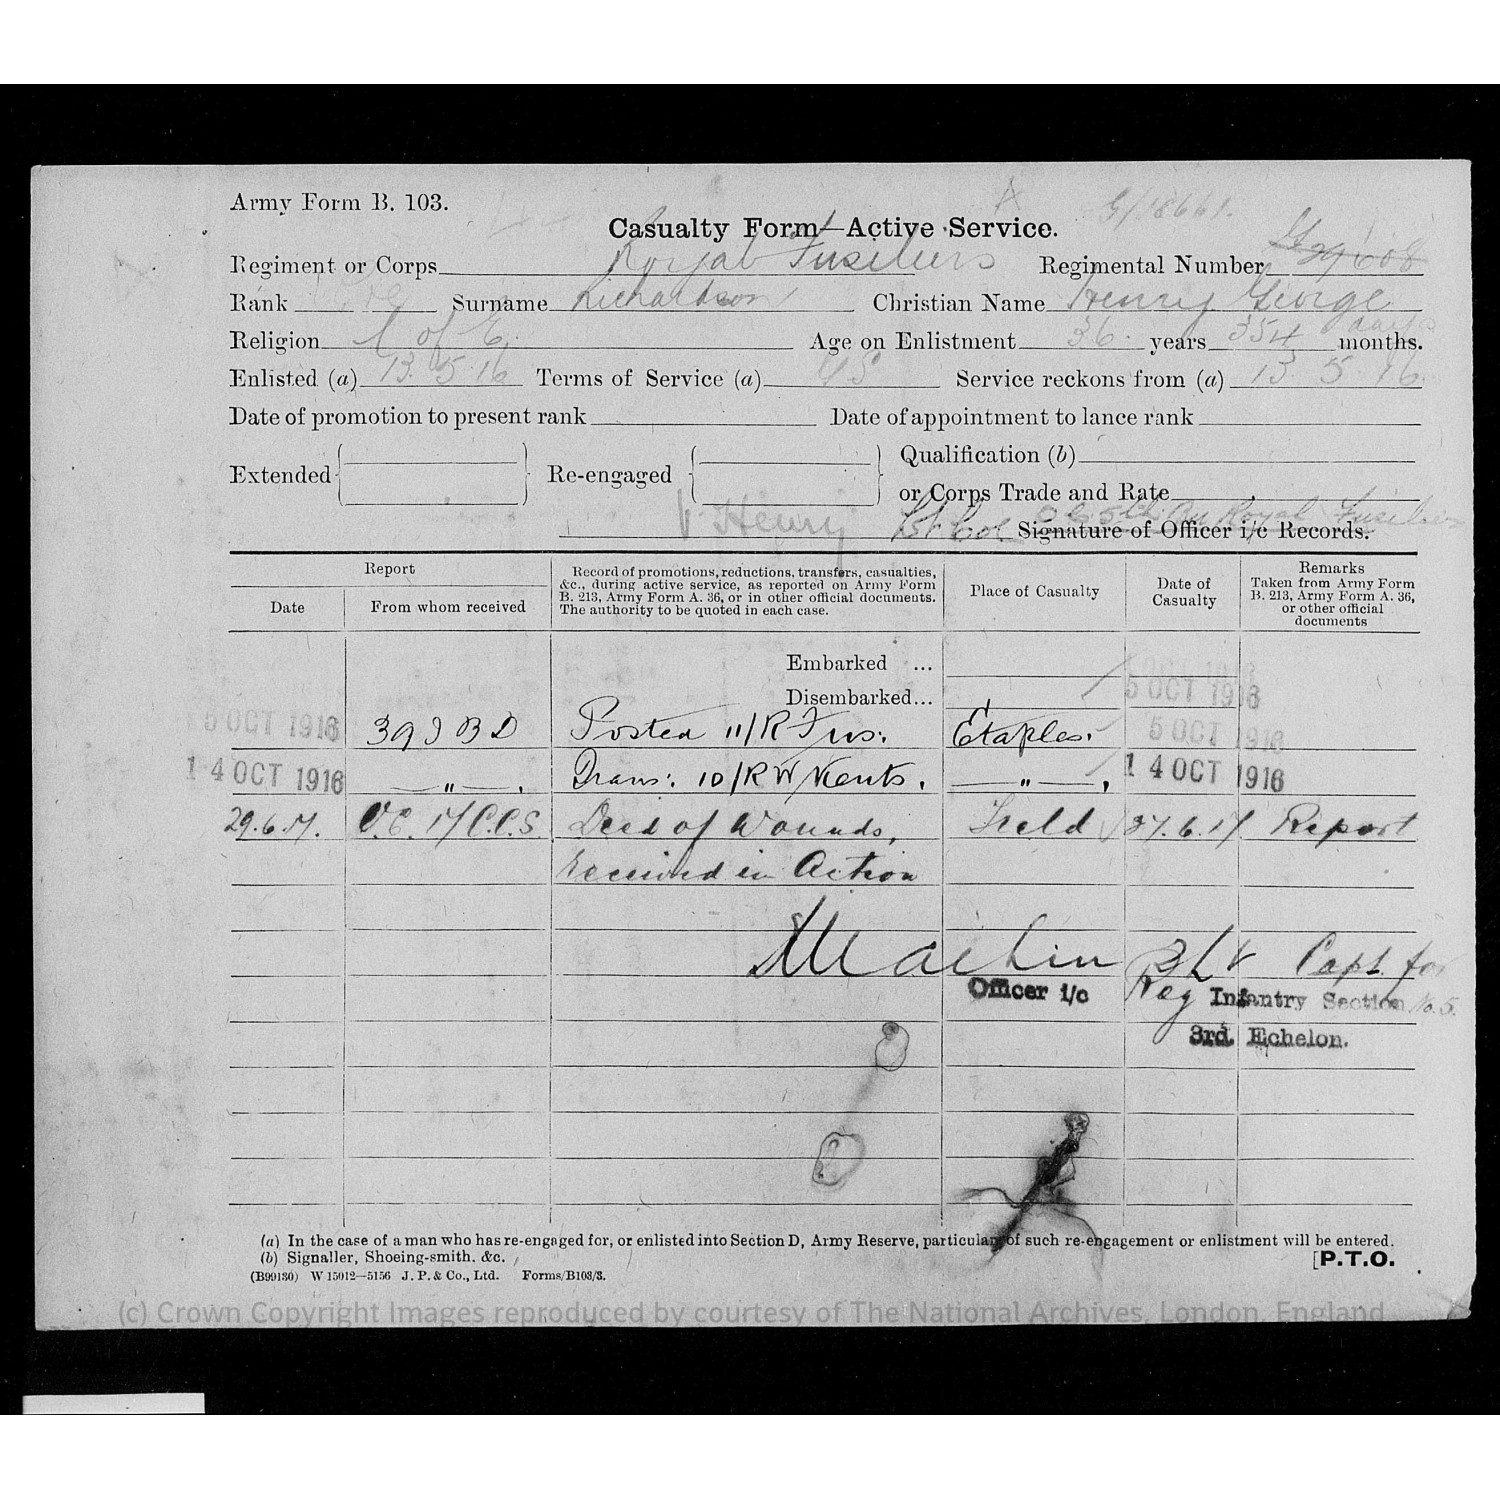 Army Form B. 103.
G/18661.
Casualty Form—Active Service.
Regiment or Corps Royal Fusiliers Regimental Number G 29608
Rank Pte Surname Richardson Christian Name Henry George
Religion C of E. Age on Enlistment 36 years 354 days months.
Enlisted (a) 13 5 16 Terms of Service (a) Service reckons from (a) 13 5 16
Date of promotion to present rank Date of appointment to lance rank
Extended Re-engaged Qualification (b)
or Corps Trade and Rate
V Henry Lt Col Royal Fusiliers
Signature of Officer i/c Records.
Report
Date From whom received
Record of promotions, reductions, transfers, casualties, &c., during active service, as reported on Army Form B. 213, Army Form A. 36, or in other official documents. The authority to be quoted in each case.
Place of Casualty
Date of Casualty
Remarks Taken from Army Form B. 213, Army Form A. 36, or other official documents
Embarked ...
Disembarked... 5 OCT 1916
5 OCT 1916 39 I B D Posted 11/R Fus: Etaples. 5 OCT 1916
14 OCT 1916 —"—. Trans: 10/R W Kents. —"—, 14 OCT 1916
29.6.17. O.C. 17 C.C.S. Died of Wounds, Field 27.6.17 Report
received in Action
Capt. for
Officer i/c Reg Infantry Section No. 5.
3rd. Echelon.
(a) In the case of a man who has re-engaged for, or enlisted into Section D, Army Reserve, particulars of such re-engagement or enlistment will be entered.
(b) Signaller, Shoeing-smith. &c.
[P.T.O.
(B99130) W 15012—5156 J. P. & Co., Ltd. Forms/B103/3.
(c) Crown Copyright Images reproduced by courtesy of The National Archives, London, England